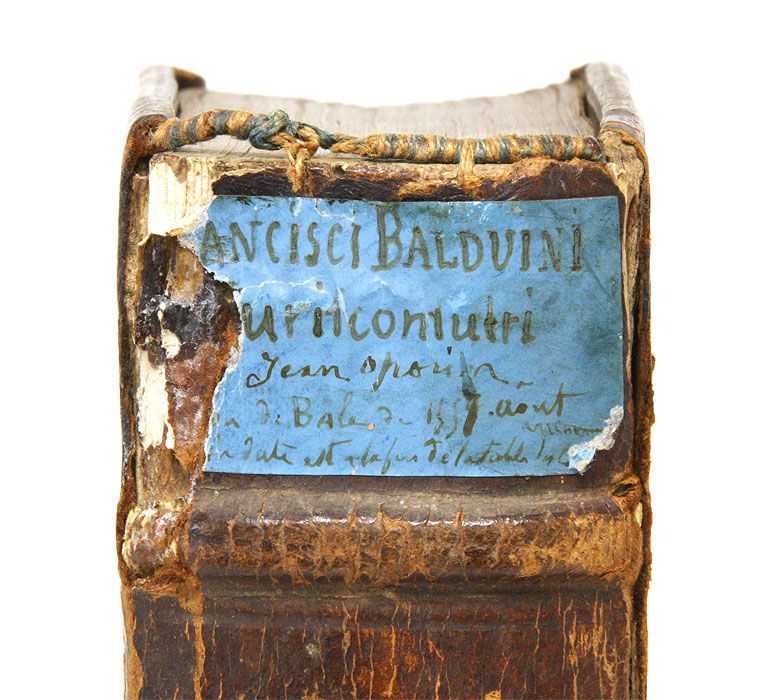 ANCISCI BALDUINI
uriſconſulti
Jean oporin
de Bale de 1557. août
date est a la fin de la table